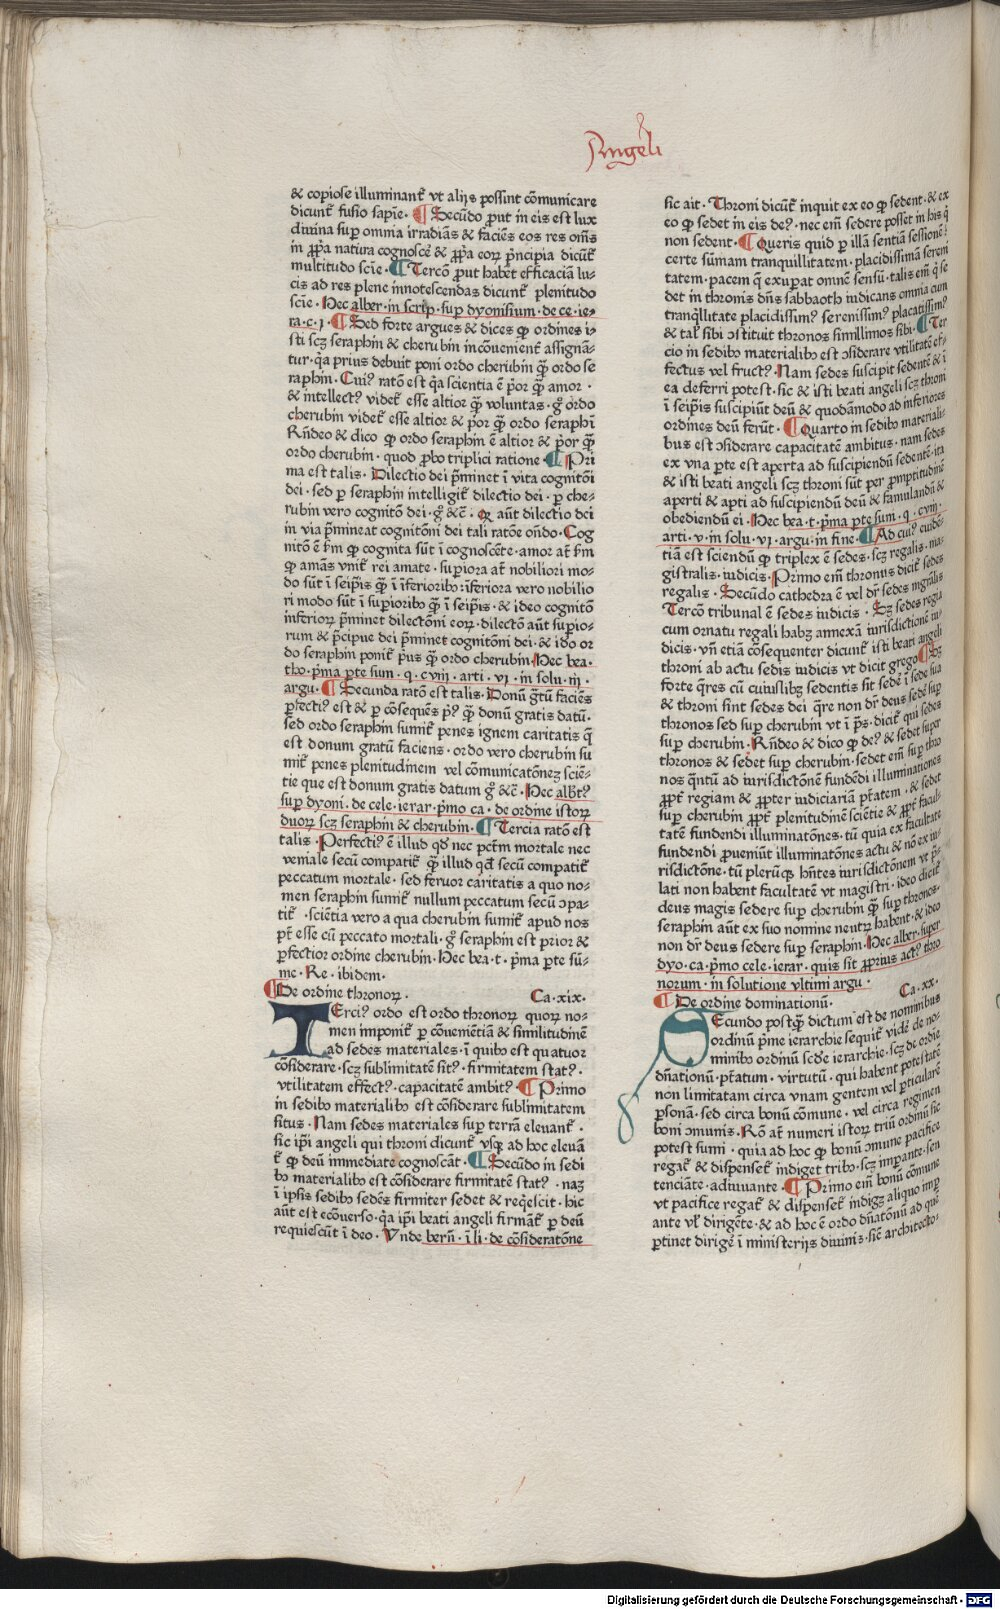 Angeli
& copiose illuminant᷑ vt alijs possint cōmunicare
dicunt᷑ fusio sapīe. ¶ Secūdo ꝓut in eis est lux
diuina suꝑ omnia irradiās & faciēs eos res om̄s
in ꝓpa natura cognosc̄e & ꝓpa eoꝝ prīncipia dicūt᷑
multitudo scīe. ¶ Tercō ꝓut habēt efficaciā lu-
cis ad res plene innotescendas dicunt᷑ plenitudo
scīe. Hec alber. in scrip. suꝑ dyonisium. de ce. ie-
ra. c. 7. ¶ Sed forte argues & dices ꝙ ordines i-
sti scꝫ seraphin & cherubin incōuenient᷑ assignā-
tur. q̄a prius debuit poni ordo cherubin q̄ꝫ ordo se
raphin. Cui⁹ ratō est q̄a scientia ē p̄or q̄ꝫ amor.
& intellect⁹ videt᷑ esse altior q̄ꝫ voluntas. g̊ ordo
cherubin videt᷑ esse altior & p̄or q̄ꝫ ordo seraphī
Rn̄deo & dico ꝙ ordo seraphin ē altior & p̄or q̄ꝫ
ordo cherubin. quod ꝓbo triplici ratione. ¶ Pri
ma est talis. Dilectio dei p̄minet ī vita cognitōi
dei. sed ꝑ seraphin intelligit᷑ dilectio dei. ꝑ che-
rubin vero cognitō dei. g̊ &c̄. Qꝫ aūt dilectio dei
in via p̄mineat cognitōni dei tali ratōe on̄do. Cog
nitō ē s̄m ꝙ cognita sūt ī cognoscēte. amor at̄ s̄m
ꝙ amās vnit᷑ rei amate. superiora at̄ nobiliori mo-
do sūt ī seip̄is q̄ꝫ ī īferioribꝰ īferiora vero nobilio
ri modo sūt ī superioribꝰ q̄ꝫ ī seip̄is. & ideo cognitō
inferioꝝ p̄minet dilectōni eoꝝ. dilectō aūt superio-
rum & p̄cipue dei p̄minet cognitōni dei. & iō or
do seraphin ponit᷑ p̄us q̄ꝫ ordo cherubin. Hec bea.
tho. p̄ma ꝑte sum. q. cviij. arti. vj. in solu. iij.
argu. ¶ Secunda ratō est talis. Donū g̊tū faciēs
ꝑfecti⁹ est & ꝑ cōsequēs p̄⁹ q̄ꝫ donū gratis datū.
sed ordo seraphin sumit᷑ penes ignem caritatis q̄
est donum gratū faciens. ordo vero cherubin su
mit᷑ penes plenitudinem vel cōmunicatōneꝫ sciē-
tie que est donum gratis datum g̊ &c̄. Hec alb̄t⁹
suꝑ dyoni. de cele. ierar. p̄mo ca. de ordine istoꝝ
duoꝝ scꝫ seraphin & cherubin. ¶ Tercia ratō est
talis. Perfecti⁹ ē illud qd̄ nec pct̄m mortale nec
veniale secū compatit᷑ q̄ꝫ illud qd̄ secū compatit᷑
peccatum mortale. sed feruor caritatis a quo no-
men seraphin sumit᷑ nullum peccatum secū ꝯpa-
tit᷑. sciētia vero a qua cherubin sumit᷑ apud nos
pt̄ esse cū peccato mortali. g̊ seraphin est prior &
ꝑfectior ordine cherubin. Hec bea. t. p̄ma ꝑte sū-
me. Re. ibidem.
¶ De ordine thronoꝝ. Ca. xix.
TErci⁹ ordo est ordo thronoꝝ quoꝝ no-
men imponit᷑ ꝑ cōueniētiā & similitudinē
ad sedes materiales. ī quibꝰ est quatuor
cōsiderare. scꝫ sublimitatē sit⁹. firmitatem stat⁹.
vtilitatem effect⁹. capacitatē ambit⁹. ¶ Primo
in sedibꝰ materialibꝰ est cōsiderare sublimitatem
situs. Nam sedes materiales suꝑ terrā eleuant᷑.
sic ip̄i angeli qui throni dicunt᷑ vsqꝫ ad hoc eleuā
t᷑ ꝙ deū immediate cognoscāt. ¶ Secūdo in sedi
bꝰ materialibꝰ est cōsiderare firmitatē stat⁹. naꝫ
ī ipsis sedibꝰ sedēs firmiter sedet & req̄escit. hic
aūt est ecōuerso. q̄a ip̄i beati angeli firmāt᷑ ꝑ deū
requiescūt ī deo. Vnde bern̄. ī li. de cōsideratōne
sic ait. Throni dicūt᷑ inquit ex eo ꝙ sedent. & ex
eo ꝙ sedet in eis de⁹. nec em̄ sedere posset in his q̄
non sedent. ¶ Queris quid ꝑ illā sentiā sessionē⁊
certe sūmam tranquillitatem. placidissimā sereni
tatem. pacem q̄ exuꝑat omnē sensū. talis em̄ q̄ se
det in thronis dn̄s sabbaoth iudicans omnia cum
tranq̄llitate placidissim⁹ serenissim⁹ placatissim⁹
& tal᷑ sibi ꝯstituit thronos simillimos sibi. ¶ Ter
cio in sedibꝰ materialibꝰ est ꝯsiderare vtilitatē ef-
fectus vel fruct⁹. Nam sedes suscipit sedentē & ī
ea deferri potest. sic & isti beati angeli scꝫ throni
ī seip̄is suscipiūt deū & quodāmodo ad inferiores
ordines deū ferūt. ¶ Quarto in sedibꝰ materiali-
bus est ꝯsiderare capacitatē ambitus. nam sedes
ex vna ꝑte est aperta ad suscipiendū sedentē. ita
& isti beati angeli scꝫ throni sūt per ꝓmptitudinē
aperti & apti ad suscipiendū deū & famulandū &
obediendū ei. Hec bea. t. p̄ma ꝑte sum. q. cviij.
arti. v. in solu. vj. argu. in fine. ¶ Ad cui⁹ euidē-
tiā est sciendū ꝙ triplex ē sedes. scꝫ regalis. ma-
gistralis. iudicis. Primo em̄ thronus dicit᷑ sedes
regalis. Secūdo cathedra ē vel dr̄ sedes mgr̄alis
Tercō tribunal ē sedes iudicis. Sꝫ sedes regia
cum ornatu regali habꝫ annexā iurisdictionē iu-
dicis. vn̄ etiā cōsequenter dicunt᷑ isti beati angeli
throni ab actu sedis iudicis vt dicit grego ¶ Sꝫ
forte q̄res cū cuiuslibꝫ sedentis sit sedē ī sede sua
& throni sint sedes dei q̄re non dr̄ deus sedē suꝑ
thronos sed suꝑ cherubin vt ī p̄s. dicit᷑ qui sedes
suꝑ cherubin. Rn̄deo & dico ꝙ de⁹ & sedet super
thronos & sedet suꝑ cherubin. sedet em̄ suꝑ thro
nos q̄ntū ad iurisdictōnē fundēdi illuminationes
ꝓpt̄ regiam & ꝓpter iudiciariā pt̄atem. & sedet
suꝑ cherubin ꝓpt̄ plenitudinē sciētie & ꝓpt̄ facul-
tatē fundendi illuminatōnes. tū quia ex facultate
fundendi ꝓueniūt illuminatōnes actu & nō ex iu-
risdictōne. tū plerūqꝫ hn̄tes iurisdictōnem vt p̄-
lati non habent facultatē vt magistri. ideo dicit᷑
deus magis sedere suꝑ cherubin q̄ꝫ suꝑ thronos.
seraphin aūt ex suo nomine neutrꝫ habent. & ideo
non dr̄ deus sedere suꝑ seraphin. Hec alber. super
dyo. ca. p̄mo cele. ierar. quis sit ꝓprius act⁹ thro
norum. in solutione vltimi argu.
¶ De ordine dominationū. Ca. xx.
SEcundo postq̄ꝫ dictum est de nominibus
ordinū p̄me ierarchie sequit᷑ vidē de no-
minibꝰ ordinū scd̄e ierarchie. scꝫ de ordīe
dn̄ationū. pt̄atum. virtutū. qui habent potestatē
non limitatam circa vnam gentem vel ꝑticularē
ꝑsonā. sed circa bonū cōmune. vel circa regimen
boni ꝯmunis. Rō at̄ numeri istoꝝ triū ordinū sic
potest sumi. quia ad hoc ꝙ bonū ꝯmune pacifice
regat᷑ & dispenset᷑ indiget tribꝰ. scꝫ impante. sen
tenciāte. adiuuante. ¶ Primo em̄ bonū cōmune
vt pacifice regat᷑ & dispenset᷑ indigꝫ aliquo impe
ante vl᷑ dirigēte. & ad hoc ē ordo dn̄atōnū ad quē
ꝑtinet dirigē ī ministerijs diuinis. sic̄ architecto-
Digitalisierung gefördert durch die Deutsche Forschungsgemeinschaft - DFG